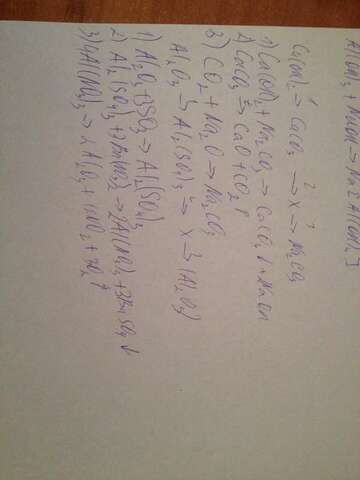 Al(OH)₃ + NaOH → Na[Al(OH)₄]
Ca(OH)₂ →¹ CaCO₃ →² X →³ Na₂CO₃
1) Ca(OH)₂ + Na₂CO₃ → CaCO₃↓ + NaOH
2) CaCO₃ → CaO + CO₂↑
3) CO₂ + Na₂O → Na₂CO₃
Al₂O₃ → Al₂(SO₄)₃ → X → (Al₂O₃)
1) Al₂O₃ + 3SO₃ → Al₂(SO₄)₃
2) Al₂(SO₄)₃ + 3Ba(NO₃)₂ → 2Al(NO₃)₃ + 3BaSO₄↓
3) 4Al(NO₃)₃ → 2Al₂O₃ + 12NO₂ + 3O₂↑